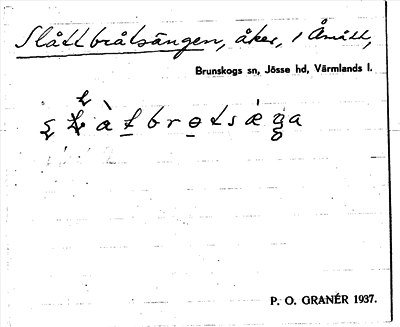 Slåttbråtsängen, åker, i Åmått,
Brunskogs sn, Jösse hd, Värmlands l.
P. O. GRANÉR 1937.